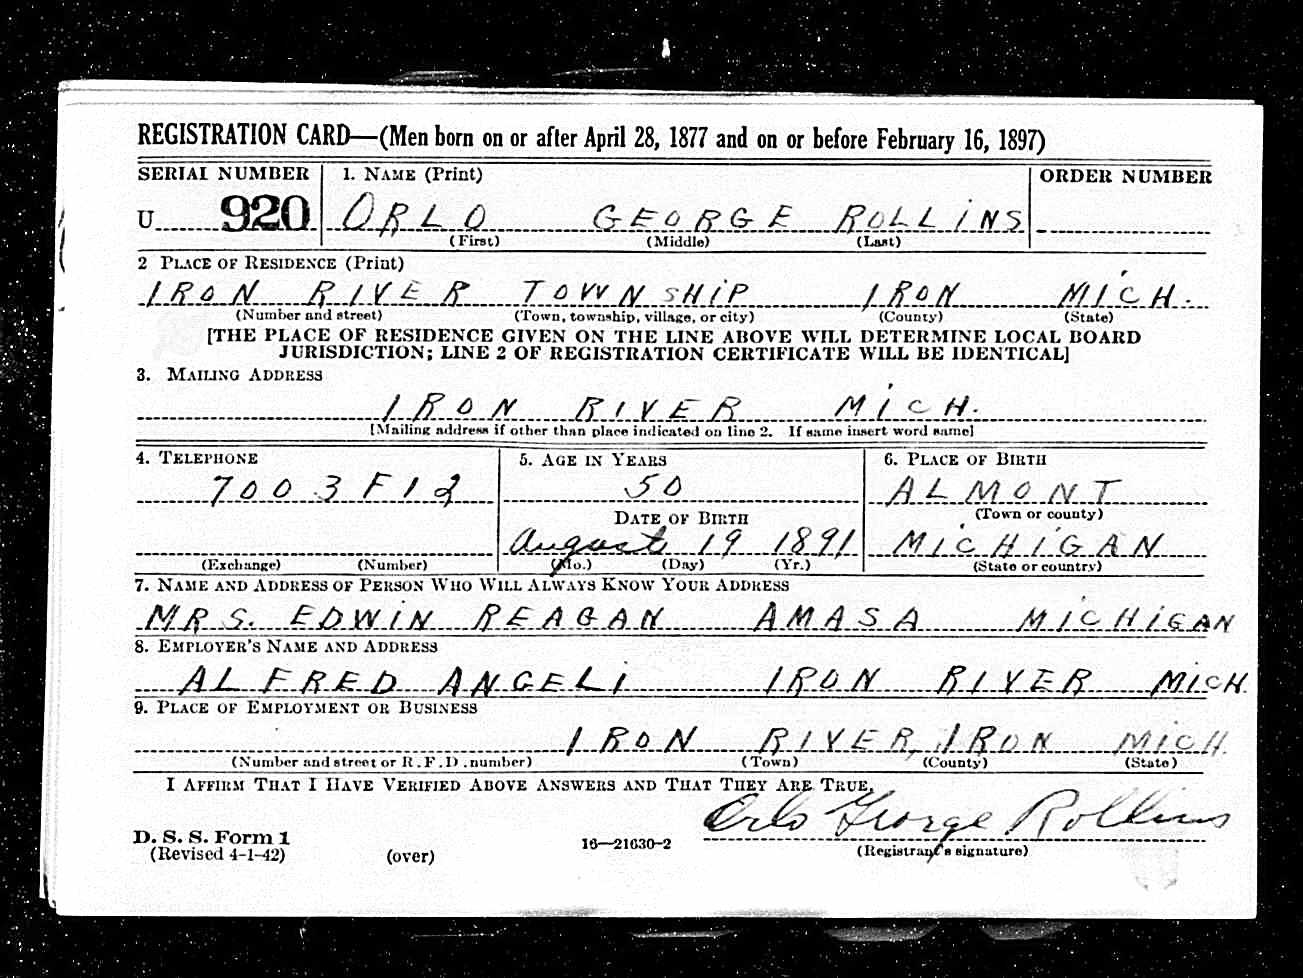 REGISTRATION CARD—(Men born on or after April 28, 1877 and on or before February 16, 1897)
SERIAL NUMBER 1. NAME (Print) ORDER NUMBER
U 920 ORLO GEORGE ROLLINS
(First) (Middle) (Last)
2 PLACE OF RESIDENCE (Print)
IRON RIVER TOWNSHIP IRON MICH.
(Number and street) (Town, township, village, or city) (County) (State)
[THE PLACE OF RESIDENCE GIVEN ON THE LINE ABOVE WILL DETERMINE LOCAL BOARD
JURISDICTION; LINE 2 OF REGISTRATION CERTIFICATE WILL BE IDENTICAL]
3. MAILING ADDRESS
IRON RIVER MICH.
[Mailing address if other than place indicated on line 2. If same insert word same]
4. TELEPHONE 5. AGE IN YEARS 6. PLACE OF BIRTH
7003F12 50 ALMONT
DATE OF BIRTH (Town or county)
August 19 1891 MICHIGAN
(Exchange) (Number) (Mo.) (Day) (Yr.) (State or country)
7. NAME AND ADDRESS OF PERSON WHO WILL ALWAYS KNOW YOUR ADDRESS
MRS. EDWIN REAGAN AMASA MICHIGAN
8. EMPLOYER'S NAME AND ADDRESS
ALFRED ANGELI IRON RIVER MICH.
9. PLACE OF EMPLOYMENT OR BUSINESS
IRON RIVER, IRON MICH.
(Number and street or R. F. D. number) (Town) (County) (State)
I AFFIRM THAT I HAVE VERIFIED ABOVE ANSWERS AND THAT THEY ARE TRUE.
Orlo George Rollins
D. S. S. Form 1
(Revised 4-1-42) (over) 16—21630-2 (Registrant's signature)